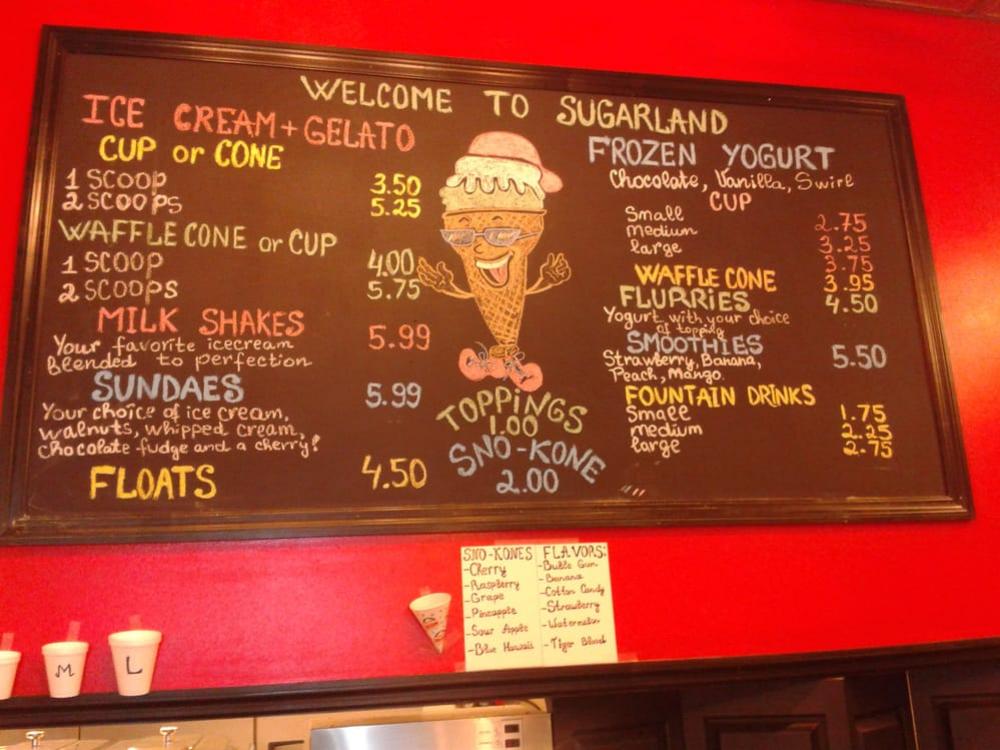 WELCOME TO SUGARLAND
ICE CREAM + GELATO
CUP or CONE
1 SCOOP 3.50
2 SCOOPS 5.25
WAFFLE CONE or CUP
1 SCOOP 4.00
2 SCOOPS 5.75
MILK SHAKES 5.99
Your favorite icecream
Blended to perfection
SUNDAES 5.99
Your choice of ice cream,
walnuts, whipped cream,
chocolate fudge and a cherry!
FLOATS 4.50
TOPPINGS
1.00
SNO-KONE
2.00
FROZEN YOGURT
Chocolate, Vanilla, Swirl
CUP
Small 2.75
Medium 3.25
large 3.75
WAFFLE CONE 3.95
FLURRIES 4.50
Yogurt with your choice
of topping
SMOOTHIES 5.50
Strawberry, Banana,
Peach, Mango.
FOUNTAIN DRINKS
Small 1.75
medium 2.25
large 2.75
SNO-KONES FLAVORS:
-Cherry
-Raspberry
-Grape
-Pineapple
-Sour Apple
-Blue Hawaii
-Buble Gum
-Banana
-Cotton Candy
-Strawberry
-Watermelon
-Tiger Blood
M
L